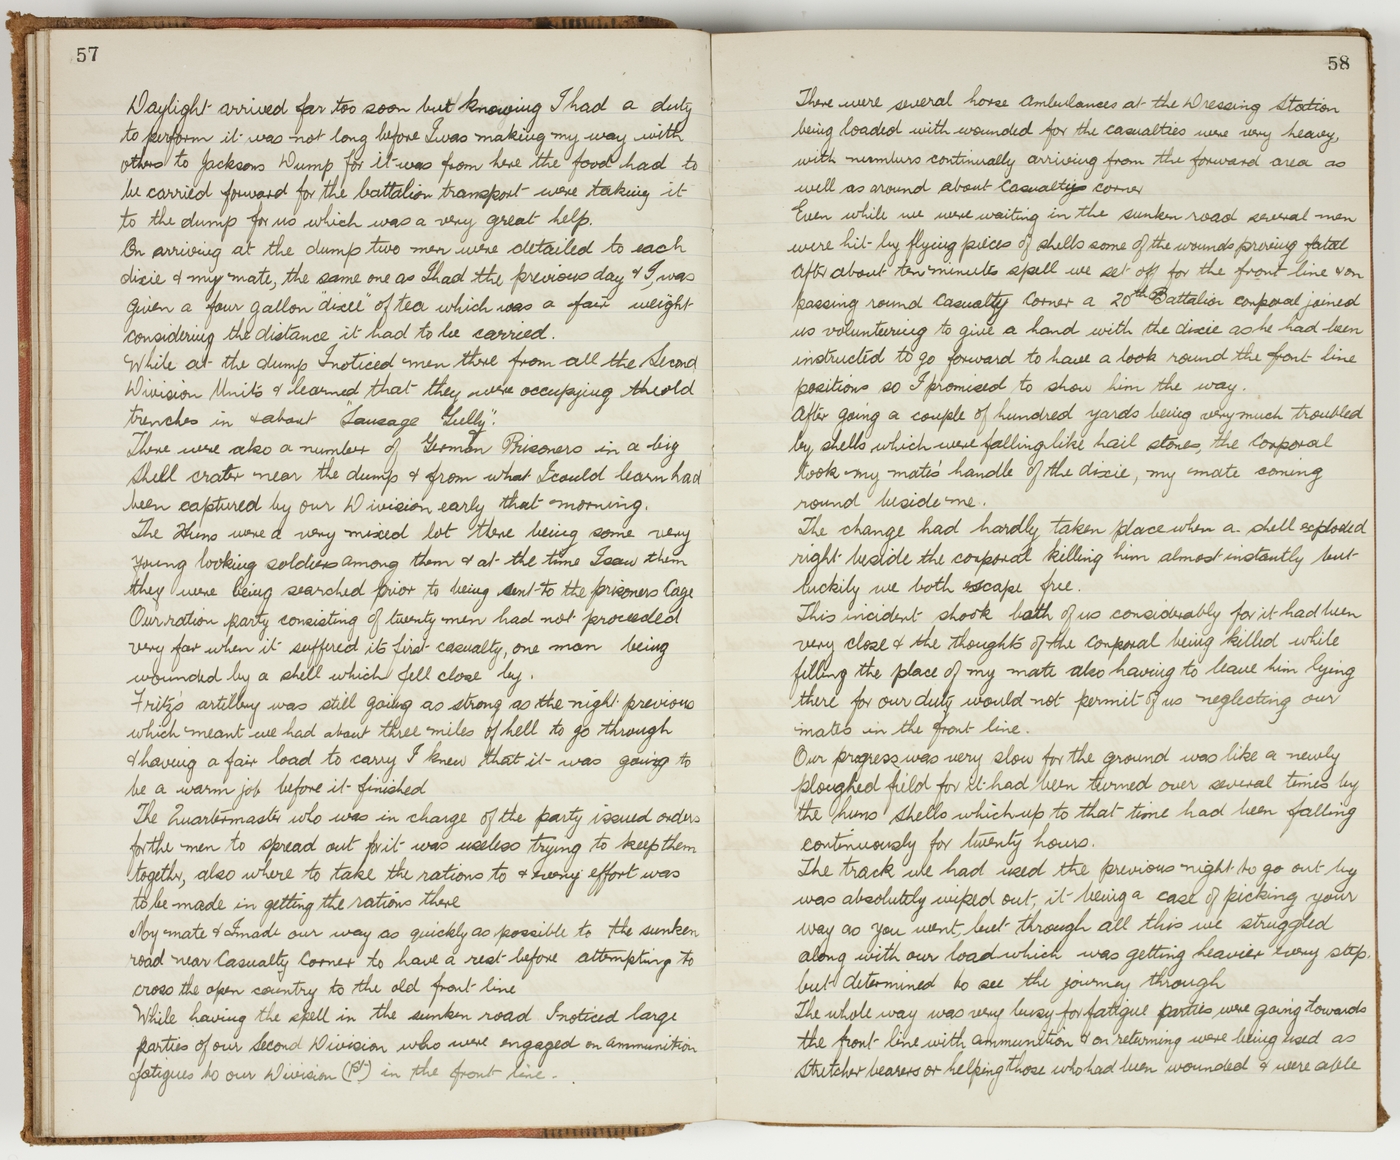 57
Daylight arrived far too soon but knowing I had a duty
to perform it was not long before I was making my way with
others to Jacksons Dump for it was from here the food had to
be carried forward for the battalion transport were taking it
to the dump for us which was a very great help.
On arriving at the dump two men were detailed to each
dixie & my mate, the same one as I had the previous day & I, was
given a four gallon "dixie" of tea which was a fair weight
considering the distance it had to be carried.
While at the dump I noticed men there from all the Second
Division Units & learned that they were occupying the old
trenches in & about "Sausage Gully".
There were also a number of German Prisoners in a big
shell crater near the dump & from what I could learn had
been captured by our Division early that morning.
The Huns were a very mixed lot there being some very
young looking soldiers among them & at the time I saw them
they were being searched prior to being sent to the prisoners Cage
Our ration party consisting of twenty men had not proceeded
very far when it suffered its first casualty, one man being
wounded by a shell which fell close by.
Fritz's artillery was still going as strong as the night previous
which meant we had about three miles of hell to go through
& having a fair load to carry I knew that it was going to
be a warm job before it finished
The Quartermaster who was in charge of the party issued orders
for the men to spread out for it was useless trying to keep them
together, also where to take the rations to & every effort was
to be made in getting the rations there
My mate & I made our way as quickly as possible to the sunken
road near Casualty Corner to have a rest before attempting to
cross the open country to the old front line
While having the spell in the sunken road I noticed large
parties of our Second Division who were engaged on ammunition
fatigues to our Division (1st) in the front line.
58
There were several horse ambulances at the Dressing Station
being loaded with wounded for the casualties were very heavy,
with numbers continually arriving from the forward area as
well as around about Casualtys corner
Even while we were waiting in the sunken road several men
were hit by flying pieces of shells some of the wounds proving fatal
After about ten minutes spell we set off for the front line & on
passing round Casualty Corner a 20th Battalion corporal joined
us volunteering to give a hand with the dixie as he had been
instructed to go forward to have a look round the front line
positions so I promised to show him the way.
After going a couple of hundred yards being very much troubled
by shells which were falling like hail stones, the Corporal
took my mate's handle of the dixie, my mate coming
round beside me.
The change had hardly taken place when a shell exploded
right beside the corporal killing him almost instantly but
luckily we both escape free.
This incident shook both of us considerably for it had been
very close & the thoughts of the Corporal being killed while
filling the place of my mate also having to leave him lying
there for our duty would not permit of us neglecting our
mates in the front line.
Our progress was very slow for the ground was like a newly
ploughed field for it had been turned over several times by
the huns shells which up to that time had been falling
continuously for twenty hours.
The track we had used the previous night to go out by
was absolutely wiped out, it being a case of picking your
way as you went, but through all this we struggled
along with our load which was getting heavier every step.
but determined to see the journey through
The whole way was very busy for fatigue parties were going towards
the front line with ammunition & on returning were being used as
stretcher bearers or helping those who had been wounded & were able